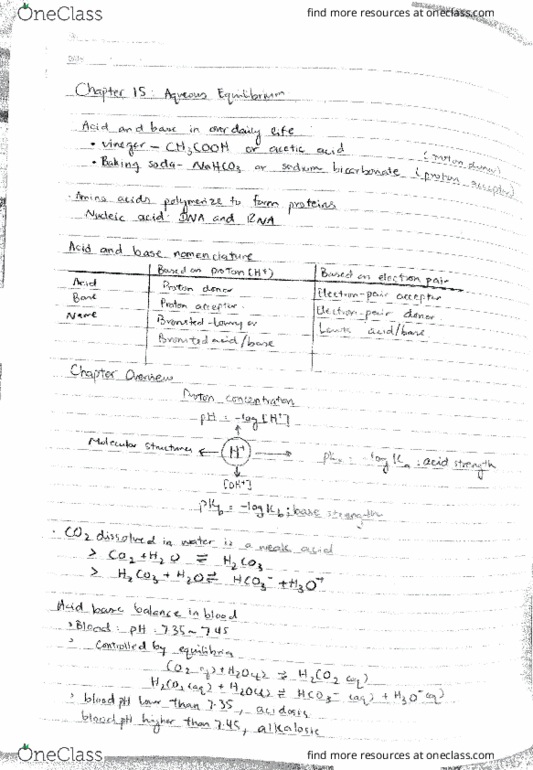 OneClass
find more resources at oneclass.com
Chapter 15: Aqueous Equilibrium
Acid and base in our daily life
• vinegar - CH3COOH or acetic acid (proton donor)
• Baking soda - NaHCO3 or sodium bicarbonate (proton acceptor)
· Amino acids polymerize to form proteins
Nucleic acid: DNA and RNA
Acid and base nomenclature
Based on proton (H+) Based on electron pair
Acid Proton donor Electron-pair acceptor
Base Proton acceptor Electron-pair donor
Name Bronsted-Lowry or Lewis acid/base
Bronsted acid/base
Chapter Overview
Proton concentration
pH = -log[H+]
Molecular structures H+ pKa = -logKa : acid strength
[OH-]
pKb = -logKb : base strength
· CO2 dissolved in water is a weak acid
> CO2 + H2O ⇌ H2CO3
> H2CO3 + H2O ⇌ HCO3- + H3O+
Acid base balance in blood
> Blood: pH: 7.35 ~ 7.45
> Controlled by equilibria
CO2(g) + H2O(l) ⇌ H2CO2(aq)
H2CO2(aq) + H2O(l) ⇌ HCO3-(aq) + H3O+(aq)
> blood pH lower than 7.35, acidosis
blood pH higher than 7.45, alkalosis
OneClass
find more resources at oneclass.com